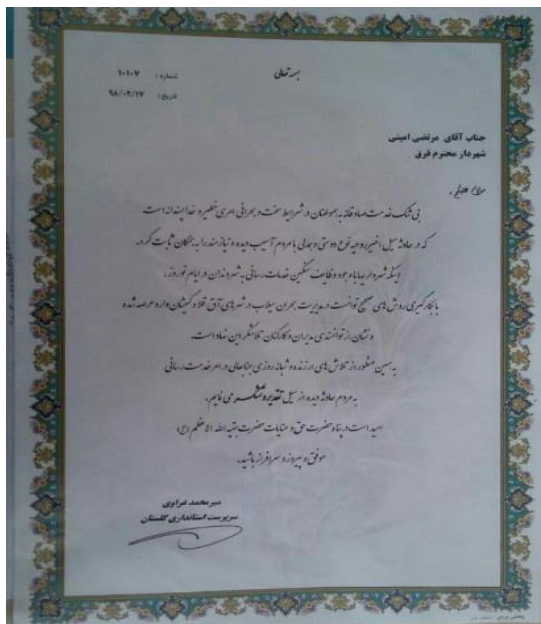 بسمه تعالی
شماره : ۱۰۱۰۷
تاریخ : ۹۸/۰۲/۱۷
جناب آقای مرتضی امینی
شهردار محترم قرق
سلام علیکم ،
بی شک خدمت صادقانه به هموطنان در شرایط سخت و بحرانی امری خطیر و خداپسندانه است
که در حادثه سیل اخیر روحیه نوع دوستی و همدلی با مردم آسیب دیده و نیازمند را به همگان ثابت کرد.
اینکه شهرداریها با وجود وظایف سنگین خدمات رسانی به شهروندان در ایام نوروز ،
با بکارگیری روش های صحیح توانست در مدیریت بحران سیلاب در شهرهای آق قلا و گمیشان وارد عرصه شده
و نشان از توانمندی مدیران و کارکنان تلاشگر این نهاد است.
به همین منظور از تلاش های ارزنده و شبانه روزی جنابعالی در امر خدمت رسانی
به مردم حادثه دیده از سیل تقدیر و تشکر می نمایم.
امید است در پناه حضرت حق و عنایات حضرت بقیه الله الاعظم (عج)
موفق و پیروز و سرافراز باشید.
میرمحمد غراوی
سرپرست استانداری گلستان